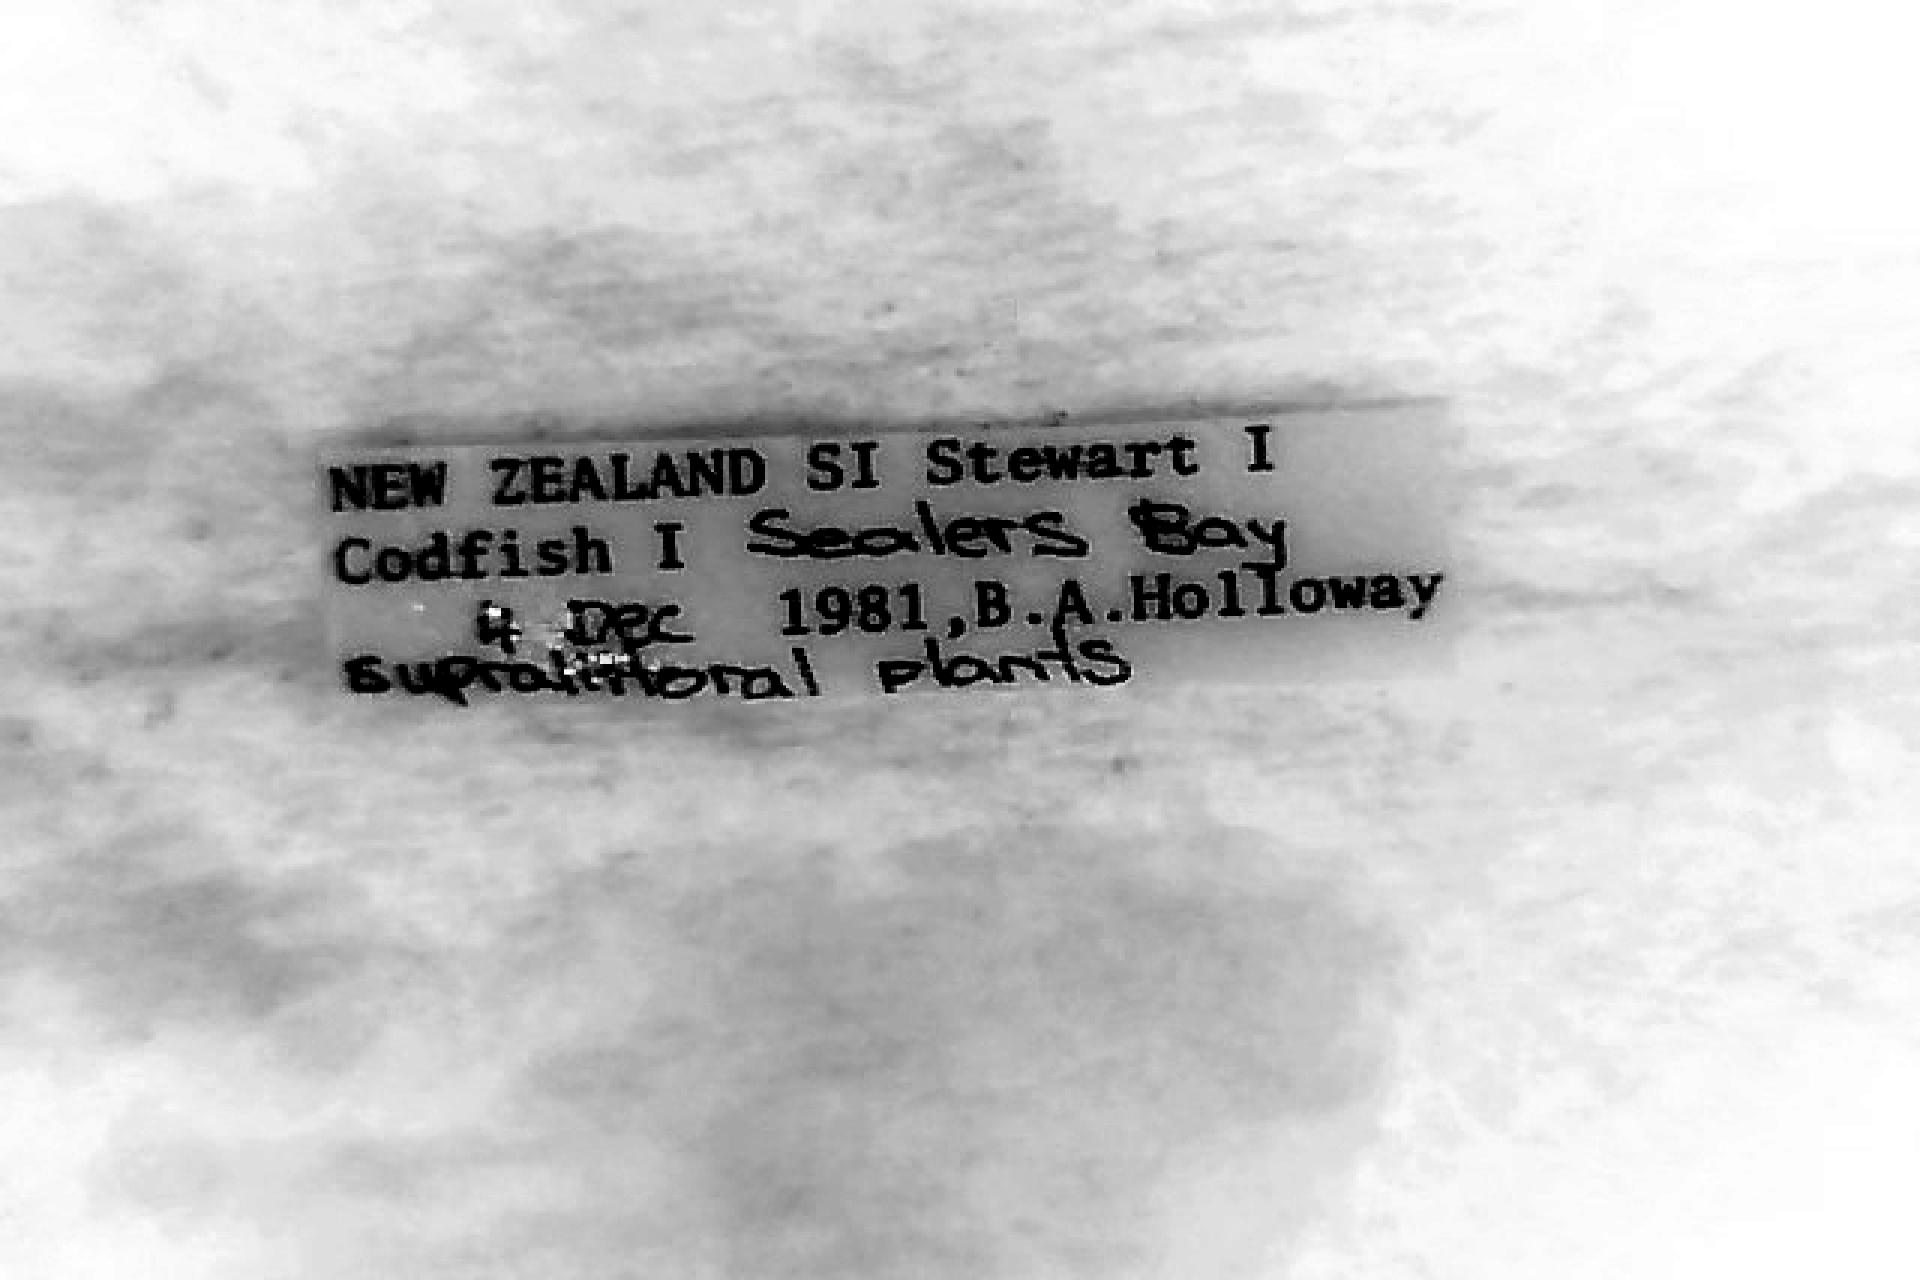 NEW ZEALAND SI Stewart I
Codfish I Sealers Bay
4 Dec 1981,B.A.Holloway
supralittoral plants